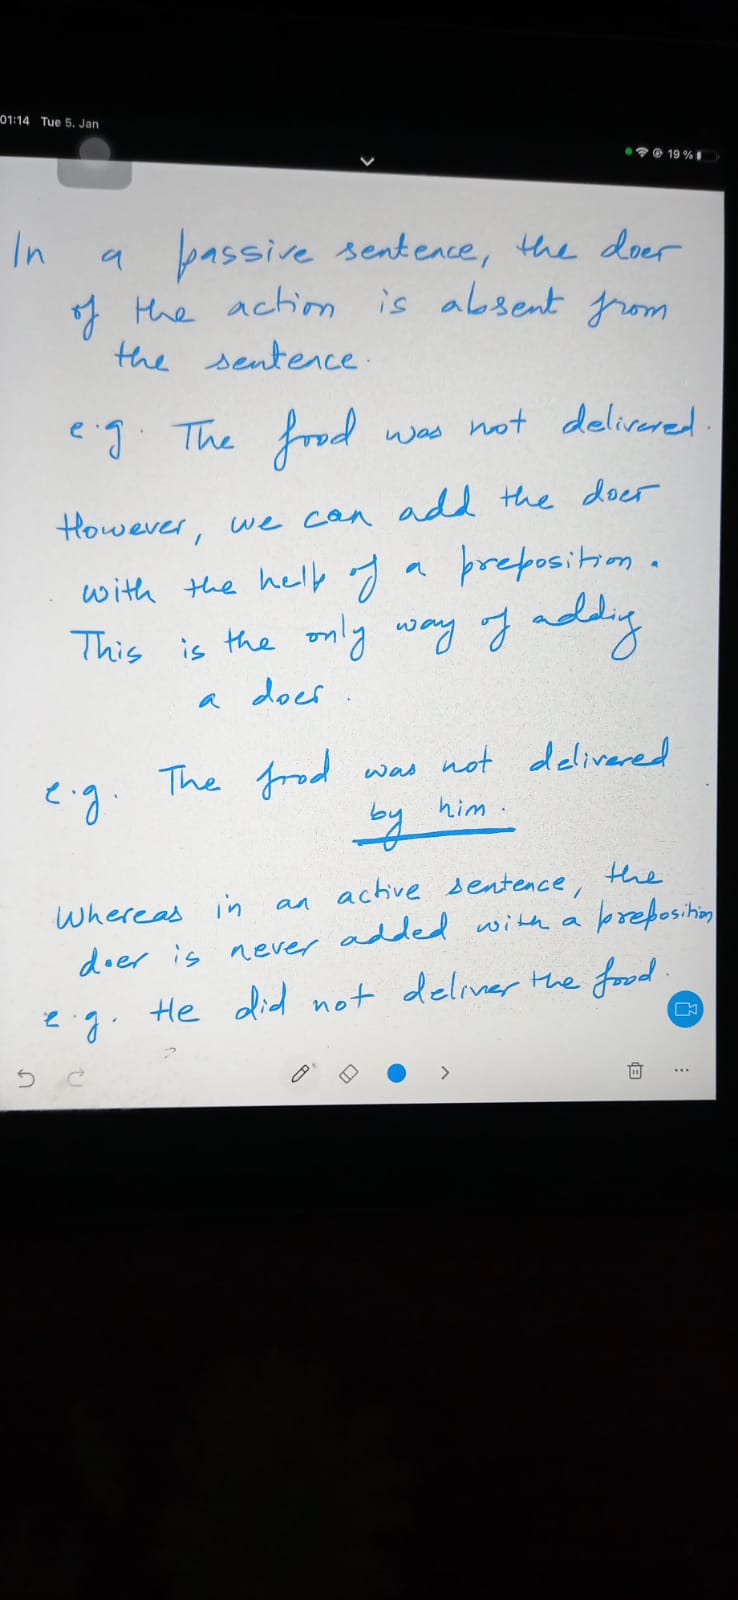 01:14 Tue 5. Jan
19 %
In a passive sentence, the doer
of the action is absent from
the sentence.
e.g. The food was not delivered.
However, we can add the doer
with the help of a preposition.
This is the only way of adding
a doer.
e.g. The food was not delivered
by him.
Whereas in an active sentence, the
doer is never added with a preposition
e.g. He did not deliver the food.